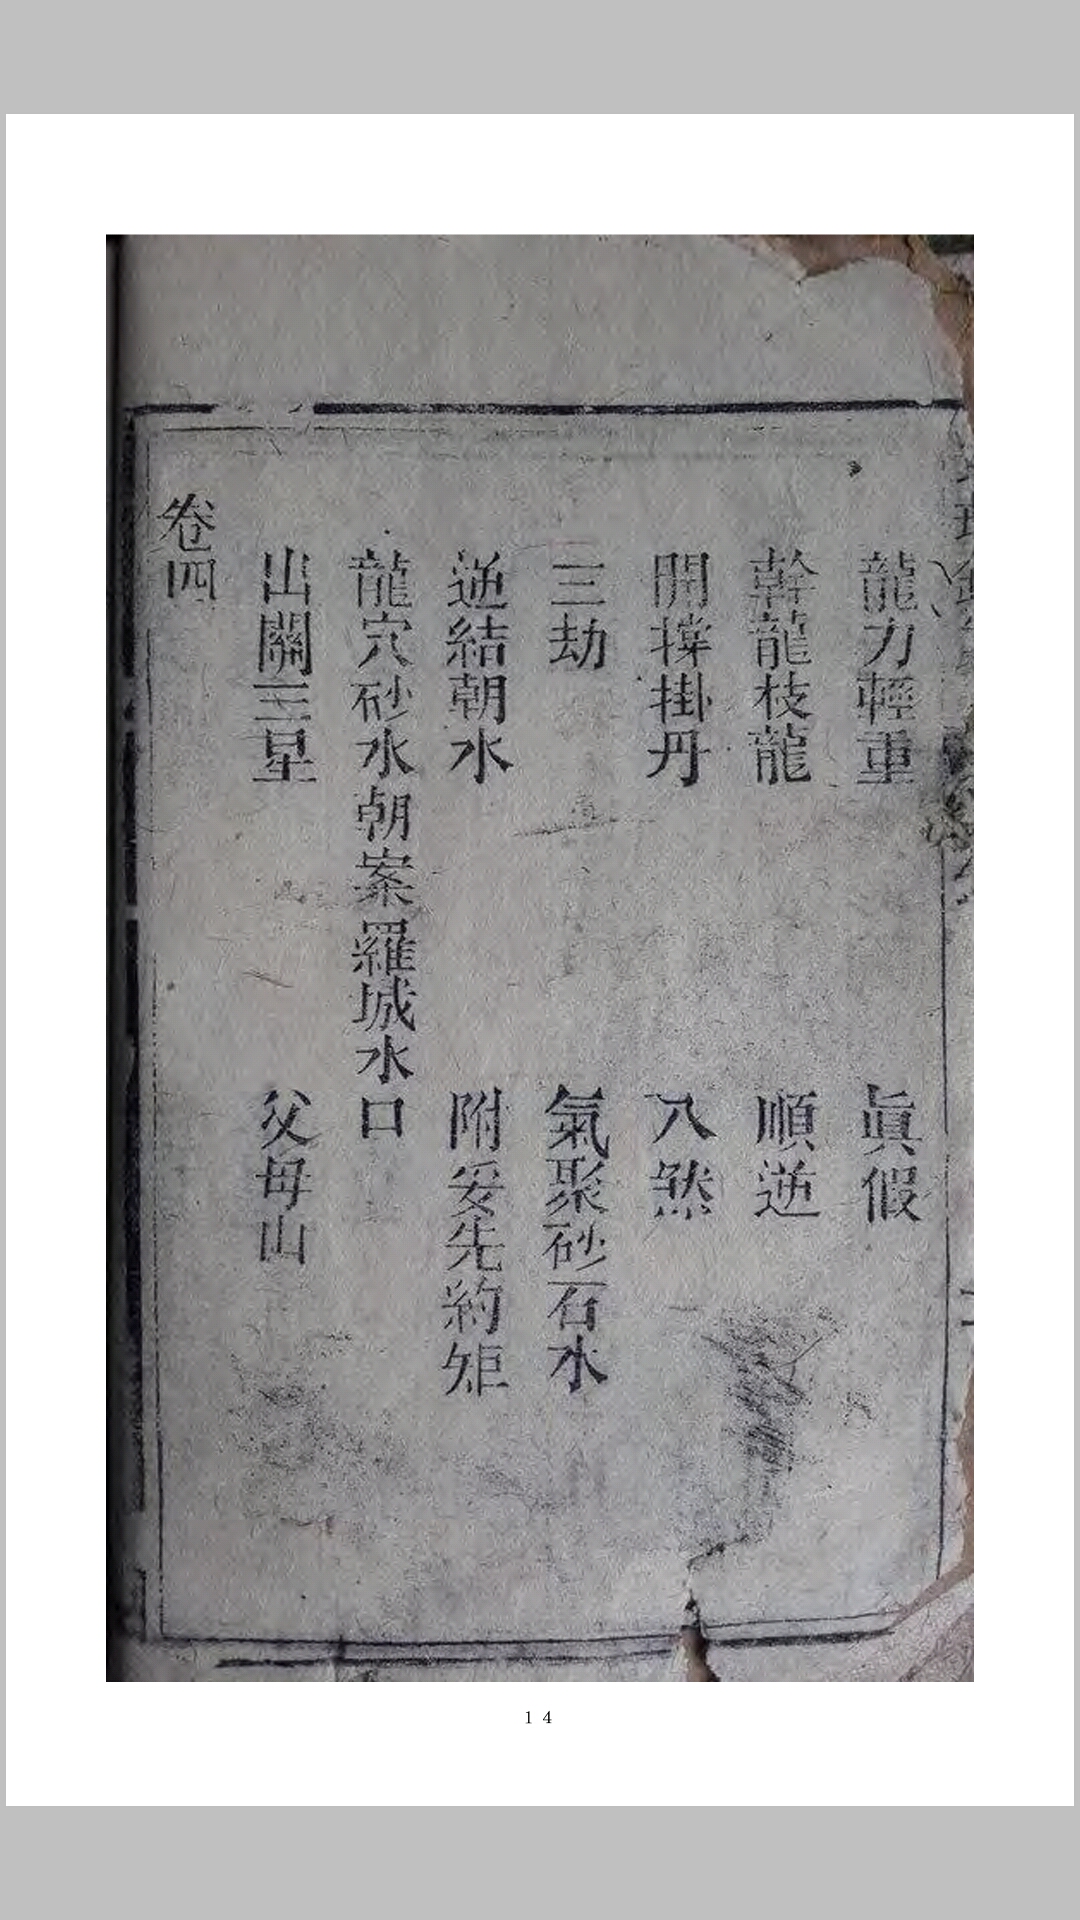 龍力輕重　眞假
幹龍枝龍　順逆
開掛丹　八煞
三劫　氣聚砂石水
逆結朝水　附妥先約矩
龍穴砂水朝案羅城水口
出關三星　父母山
卷四
14